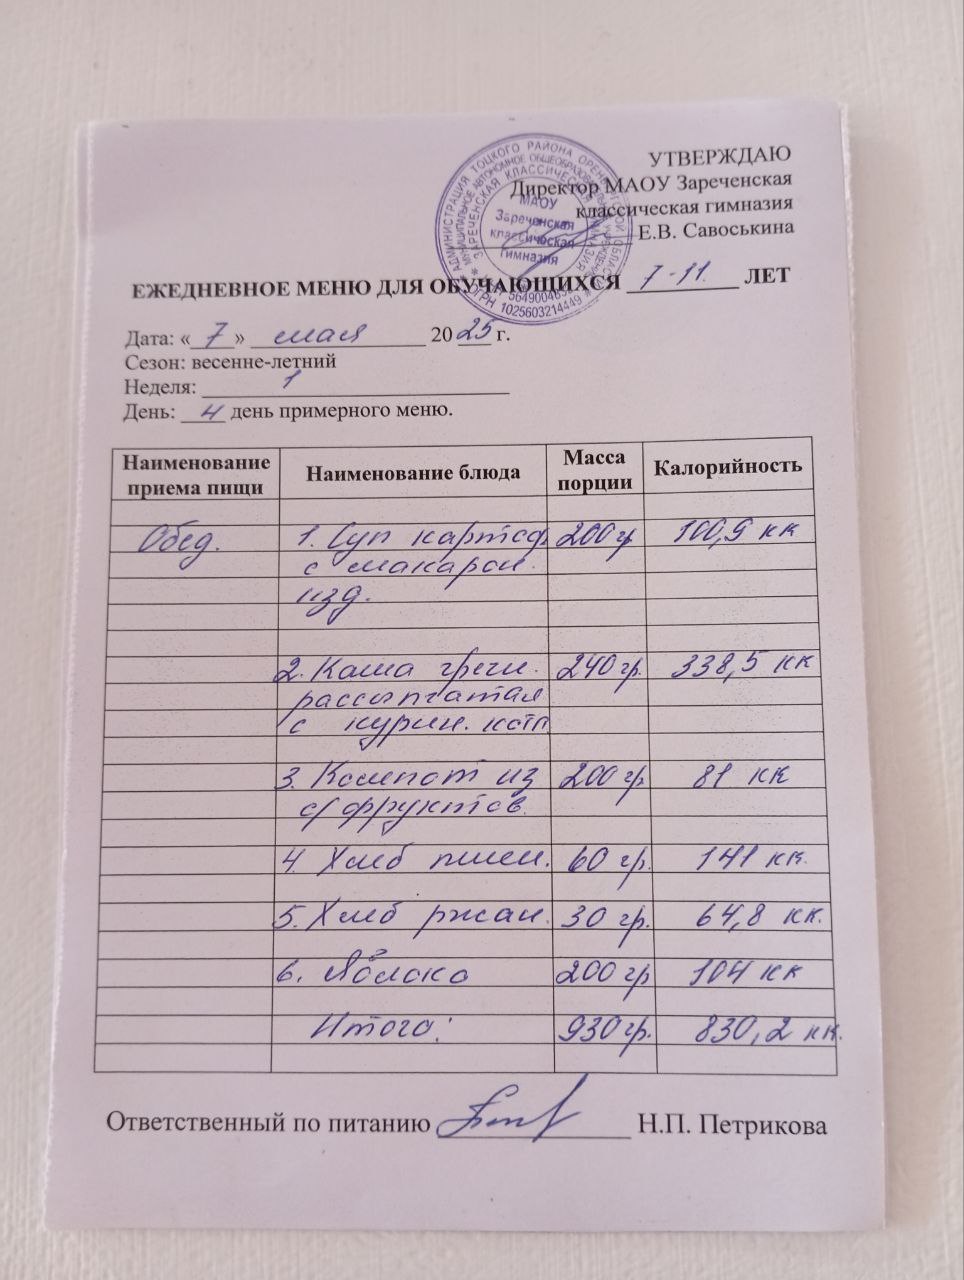 УТВЕРЖДАЮ
Директор МАОУ Зареченская
классическая гимназия
Е.В. Савоськина
АДМИНИСТРАЦИЯ ТОЦКОГО РАЙОНА ОРЕНБУРГСКОЙ ОБЛАСТИ
МУНИЦИПАЛЬНОЕ АВТОНОМНОЕ ОБЩЕОБРАЗОВАТЕЛЬНОЕ УЧРЕЖДЕНИЕ
ЗАРЕЧЕНСКАЯ КЛАССИЧЕСКАЯ ГИМНАЗИЯ
ОГРН 1025603214449
МАОУ
Зареченская
классическая
гимназия
ЕЖЕДНЕВНОЕ МЕНЮ ДЛЯ ОБУЧАЮЩИХСЯ 7-11. ЛЕТ
Дата: «7» мая 2025 г.
Сезон: весенне-летний
Неделя: 1
День: 4 день примерного меню.
Наименование приема пищи Наименование блюда Масса порции Калорийность
Обед. 1. Суп картоф. 200 гр 100,9 кк
с макарон.
изд.
2. Каша гречн. 240 гр. 338,5 кк
рассыпчатая
с курин. котл
3. Компот из 200 гр 81 кк
с/фруктов.
4. Хлеб пшен. 60 гр. 141 кк.
5. Хлеб ржан. 30 гр. 64,8 кк.
6. Яблоко 200 гр 104 кк
Итого: 930 гр. 830,2 кк.
Ответственный по питанию Н.П. Петрикова